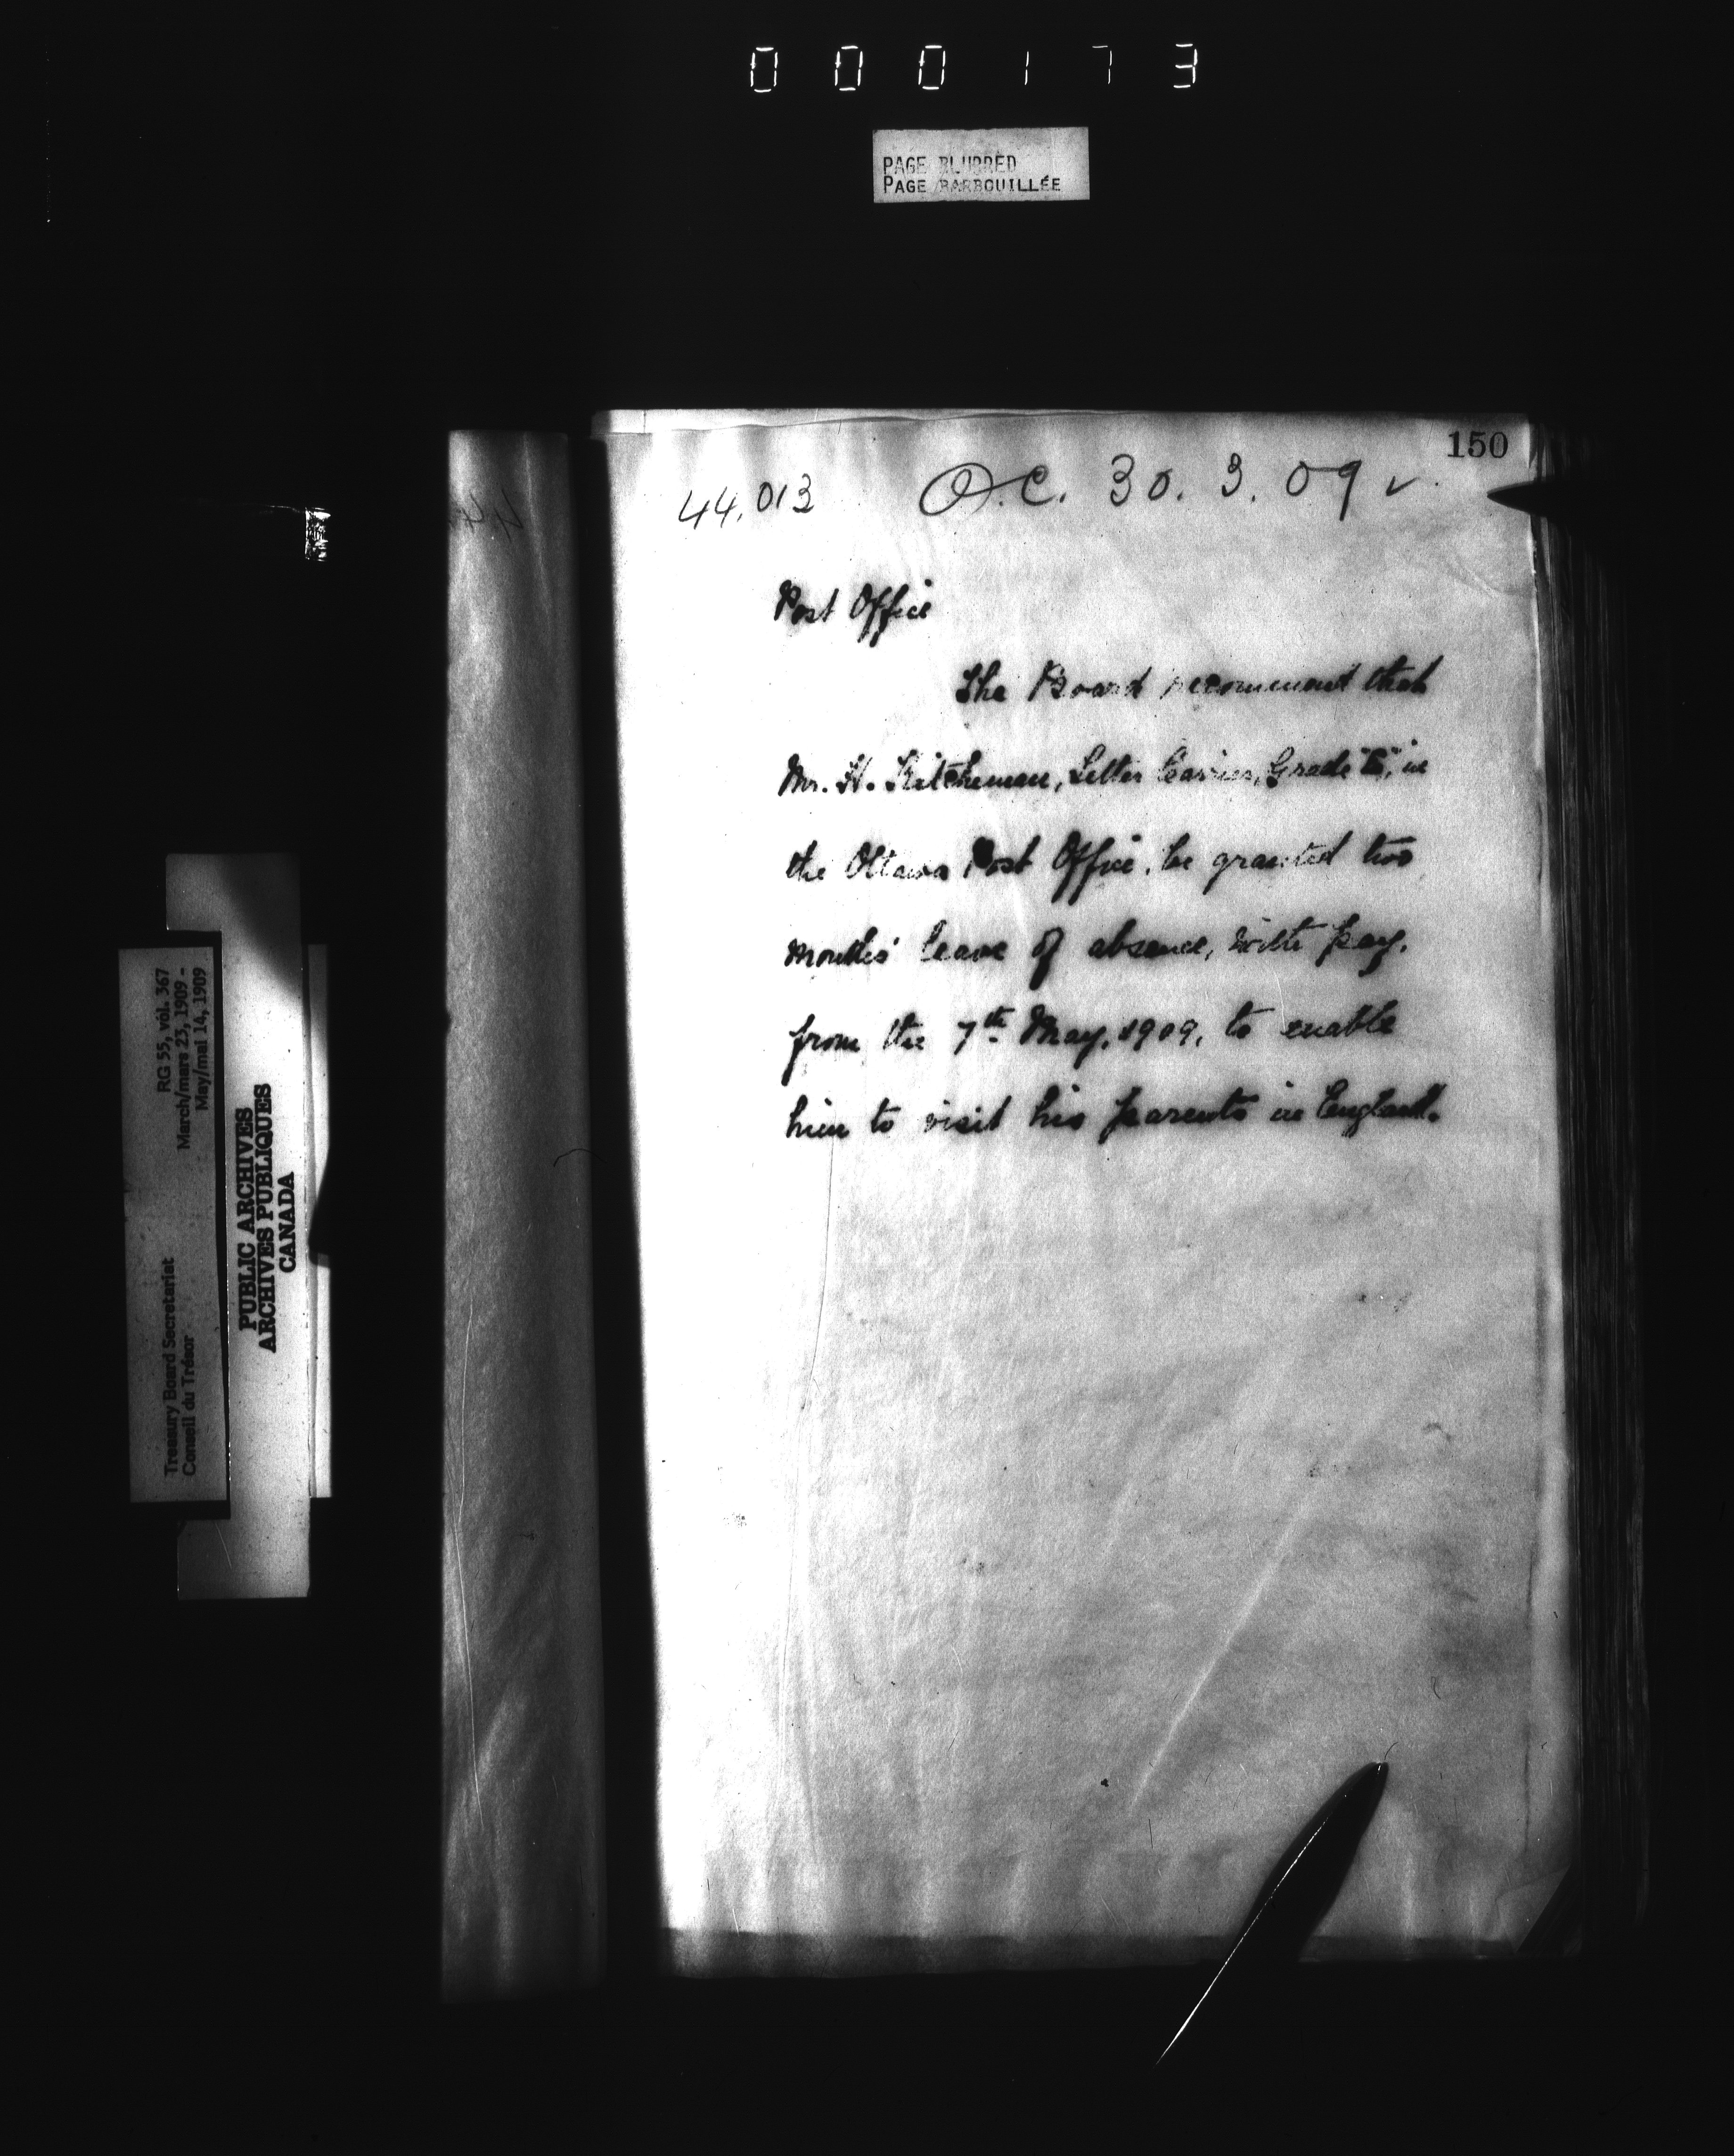 000173
PAGE BLURRED
PAGE BARBOUILLÉE
150
44,013 O.C. 30. 3. 09
Post Office
The Board recommend that
Mr. H. Kitcheman, Letter Carrier, Grade in
the Ottawa Post Office, be granted two
months' leave of absence, with pay,
from the 7th May, 1909, to enable
him to visit his parents in England.
RG 55, vol. 367
March/mars 23, 1909 -
May/mai 14, 1909
Treasury Board Secretariat
Conseil du Trésor
PUBLIC ARCHIVES
ARCHIVES PUBLIQUES
CANADA